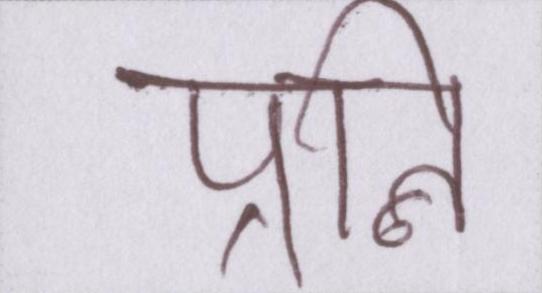 प्रति